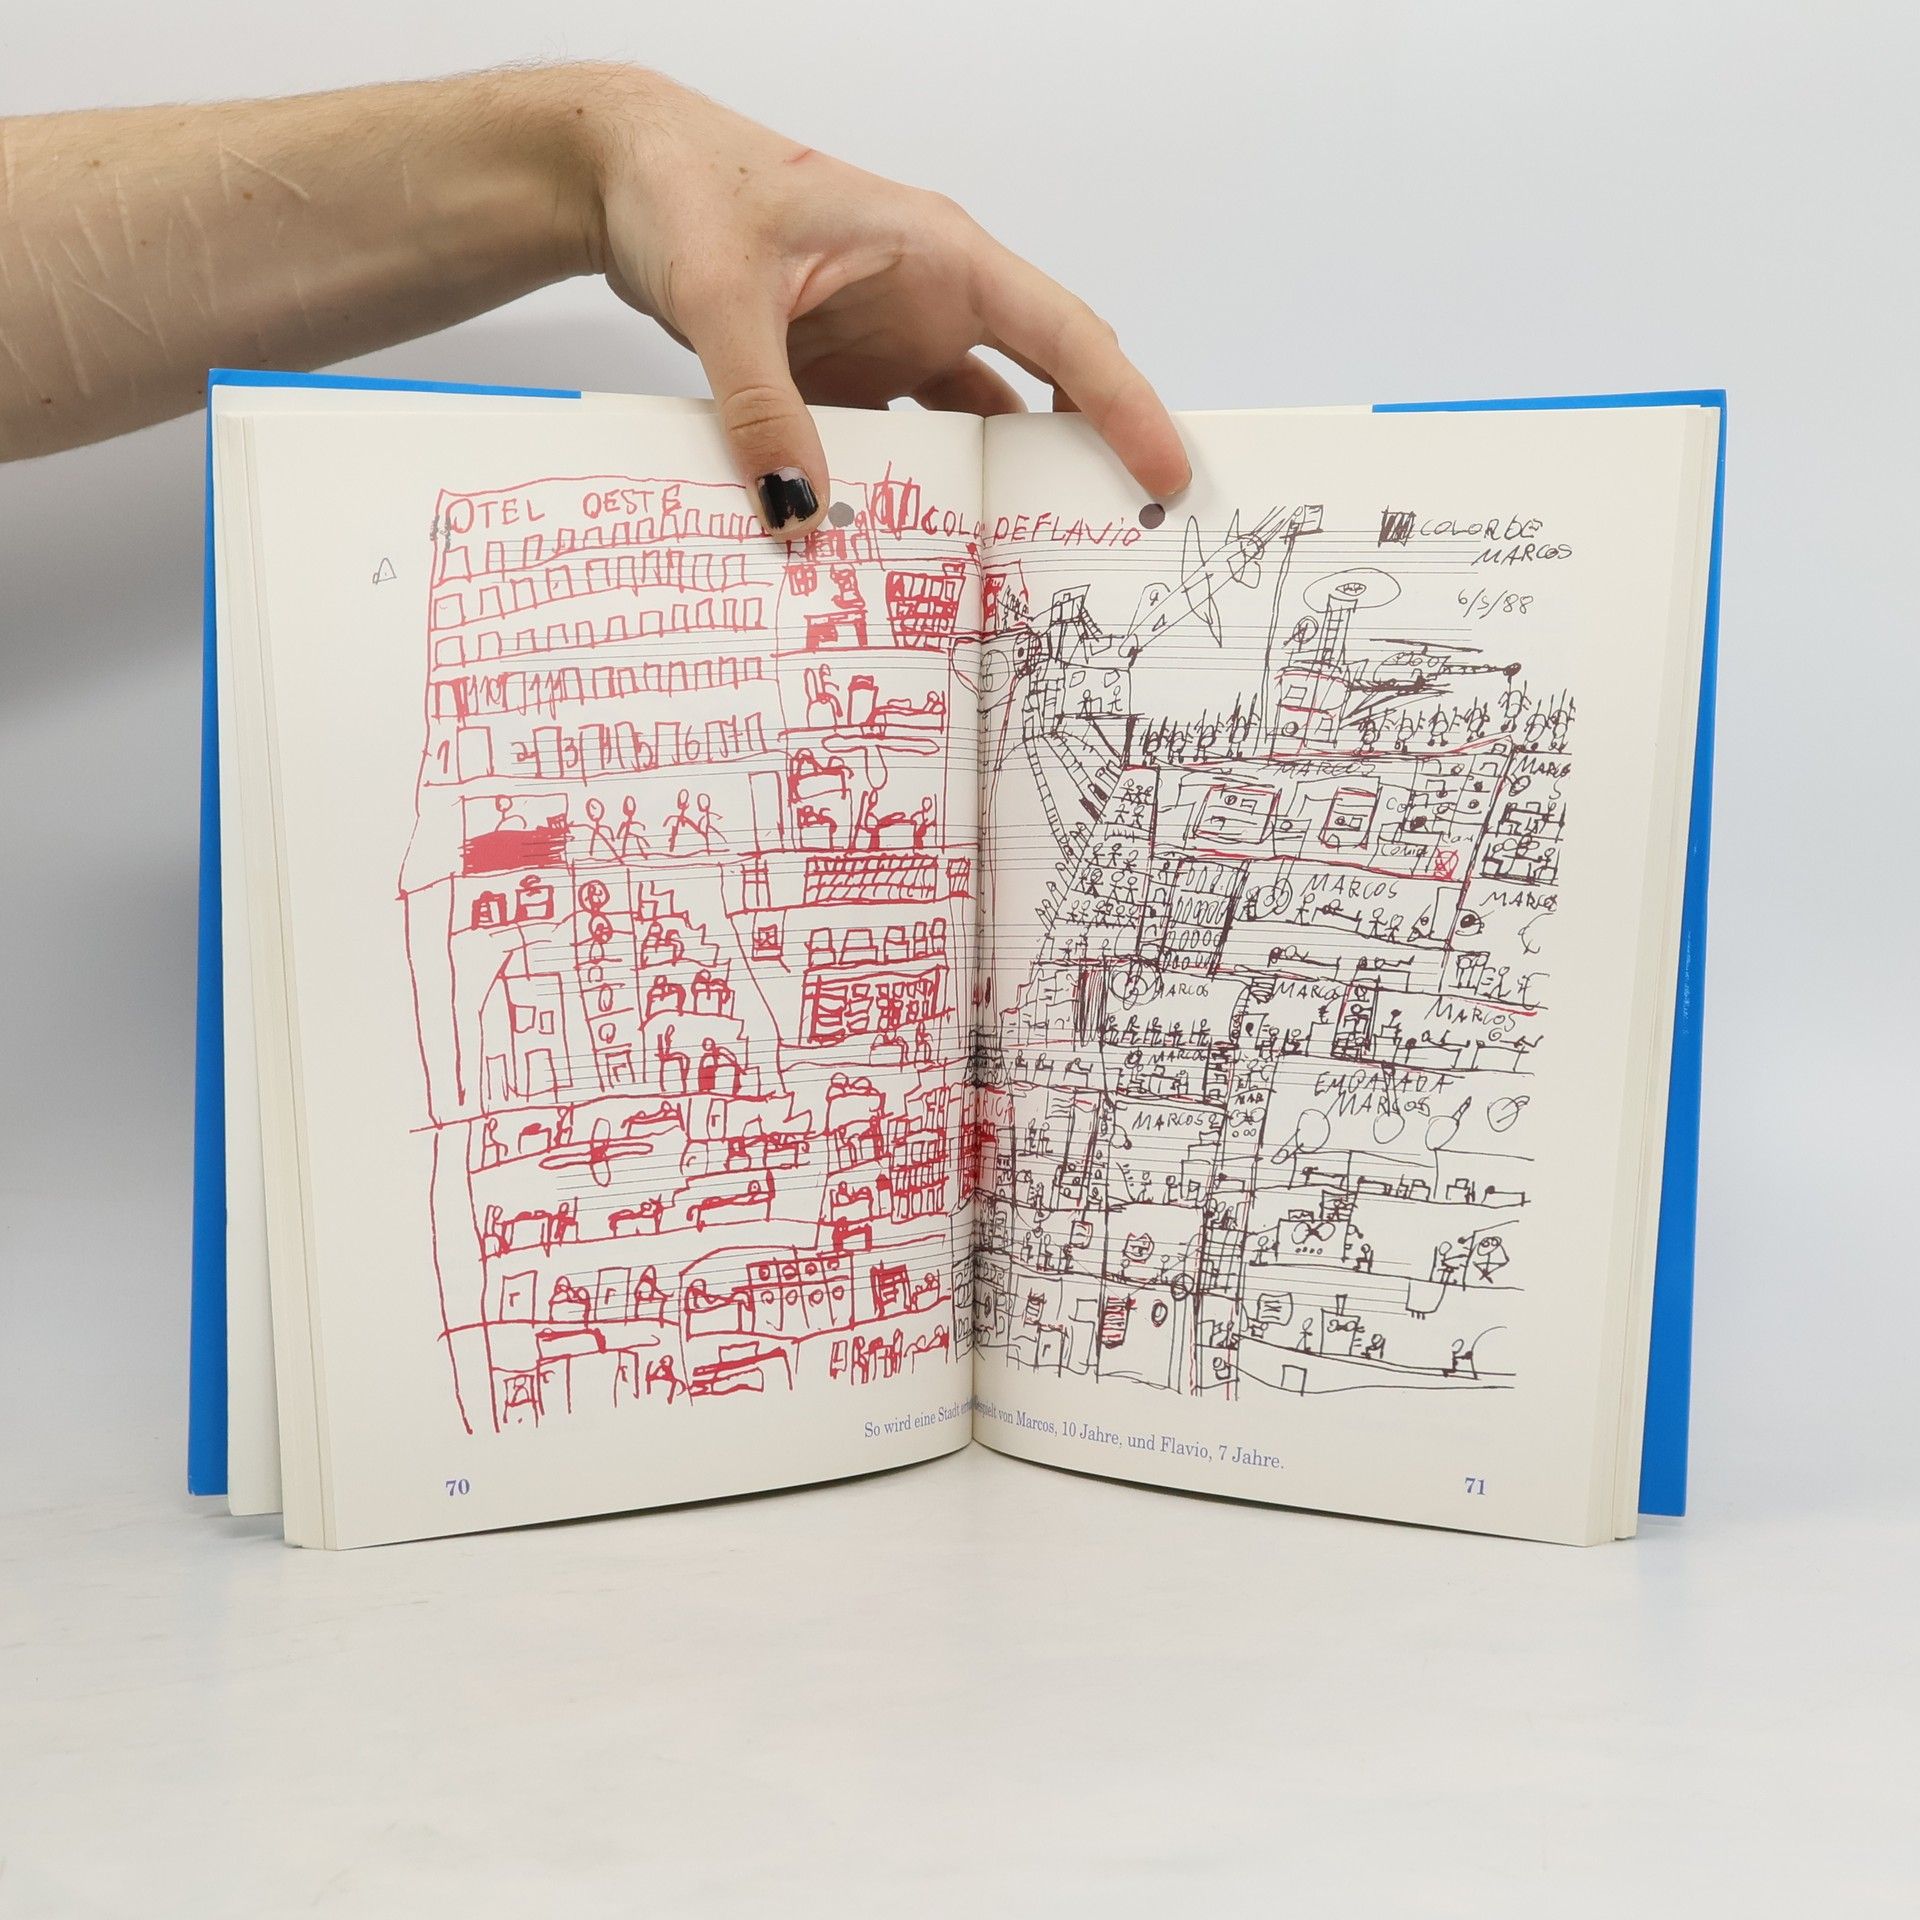 OTEL OESTE
COLOR DE FLAVIO
COLOR DE
MARCOS
6/5/88
110 111
1 2 3 4 5 6 7
MARCOS
MARCOS
MARCOS
MARCOS
MARCOS
MARCOS
MARCOS
MARCOS
EMBAJADA
MARCOS
MARCOS
So wird eine Stadt von Marcos, 10 Jahre, und Flavio, 7 Jahre.
70
71